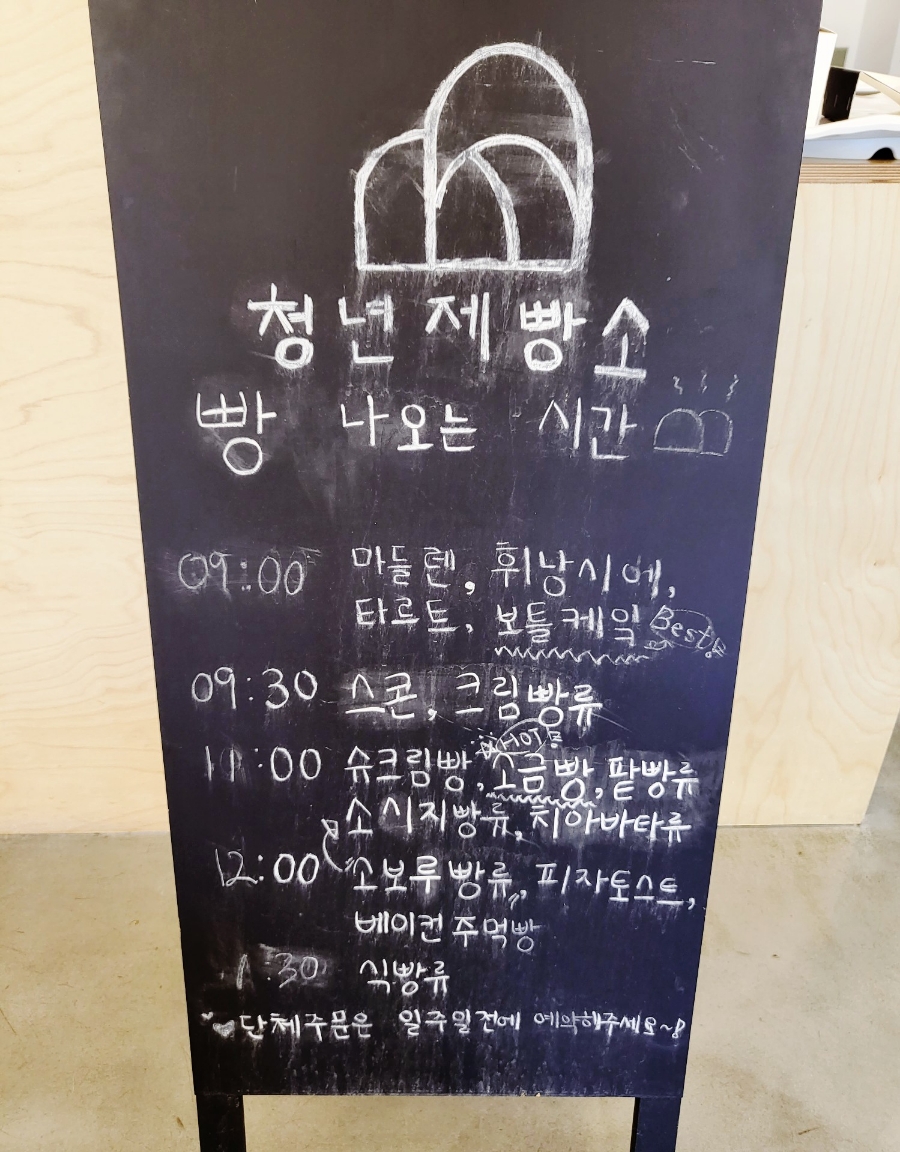 청년제빵소
빵 나오는 시간
09:00 마들렌, 휘낭시에,
타르트, 보틀케익 Best!!
09:30 스콘, 크림빵류
HOT!
11:00 슈크림빵, 소금빵, 팥빵류
소시지빵류, 치아바타류
12:00 소보루빵류, 피자토스트,
베이컨주먹빵
1:30 식빵류
단체주문은 일주일전에 예약해주세요~!